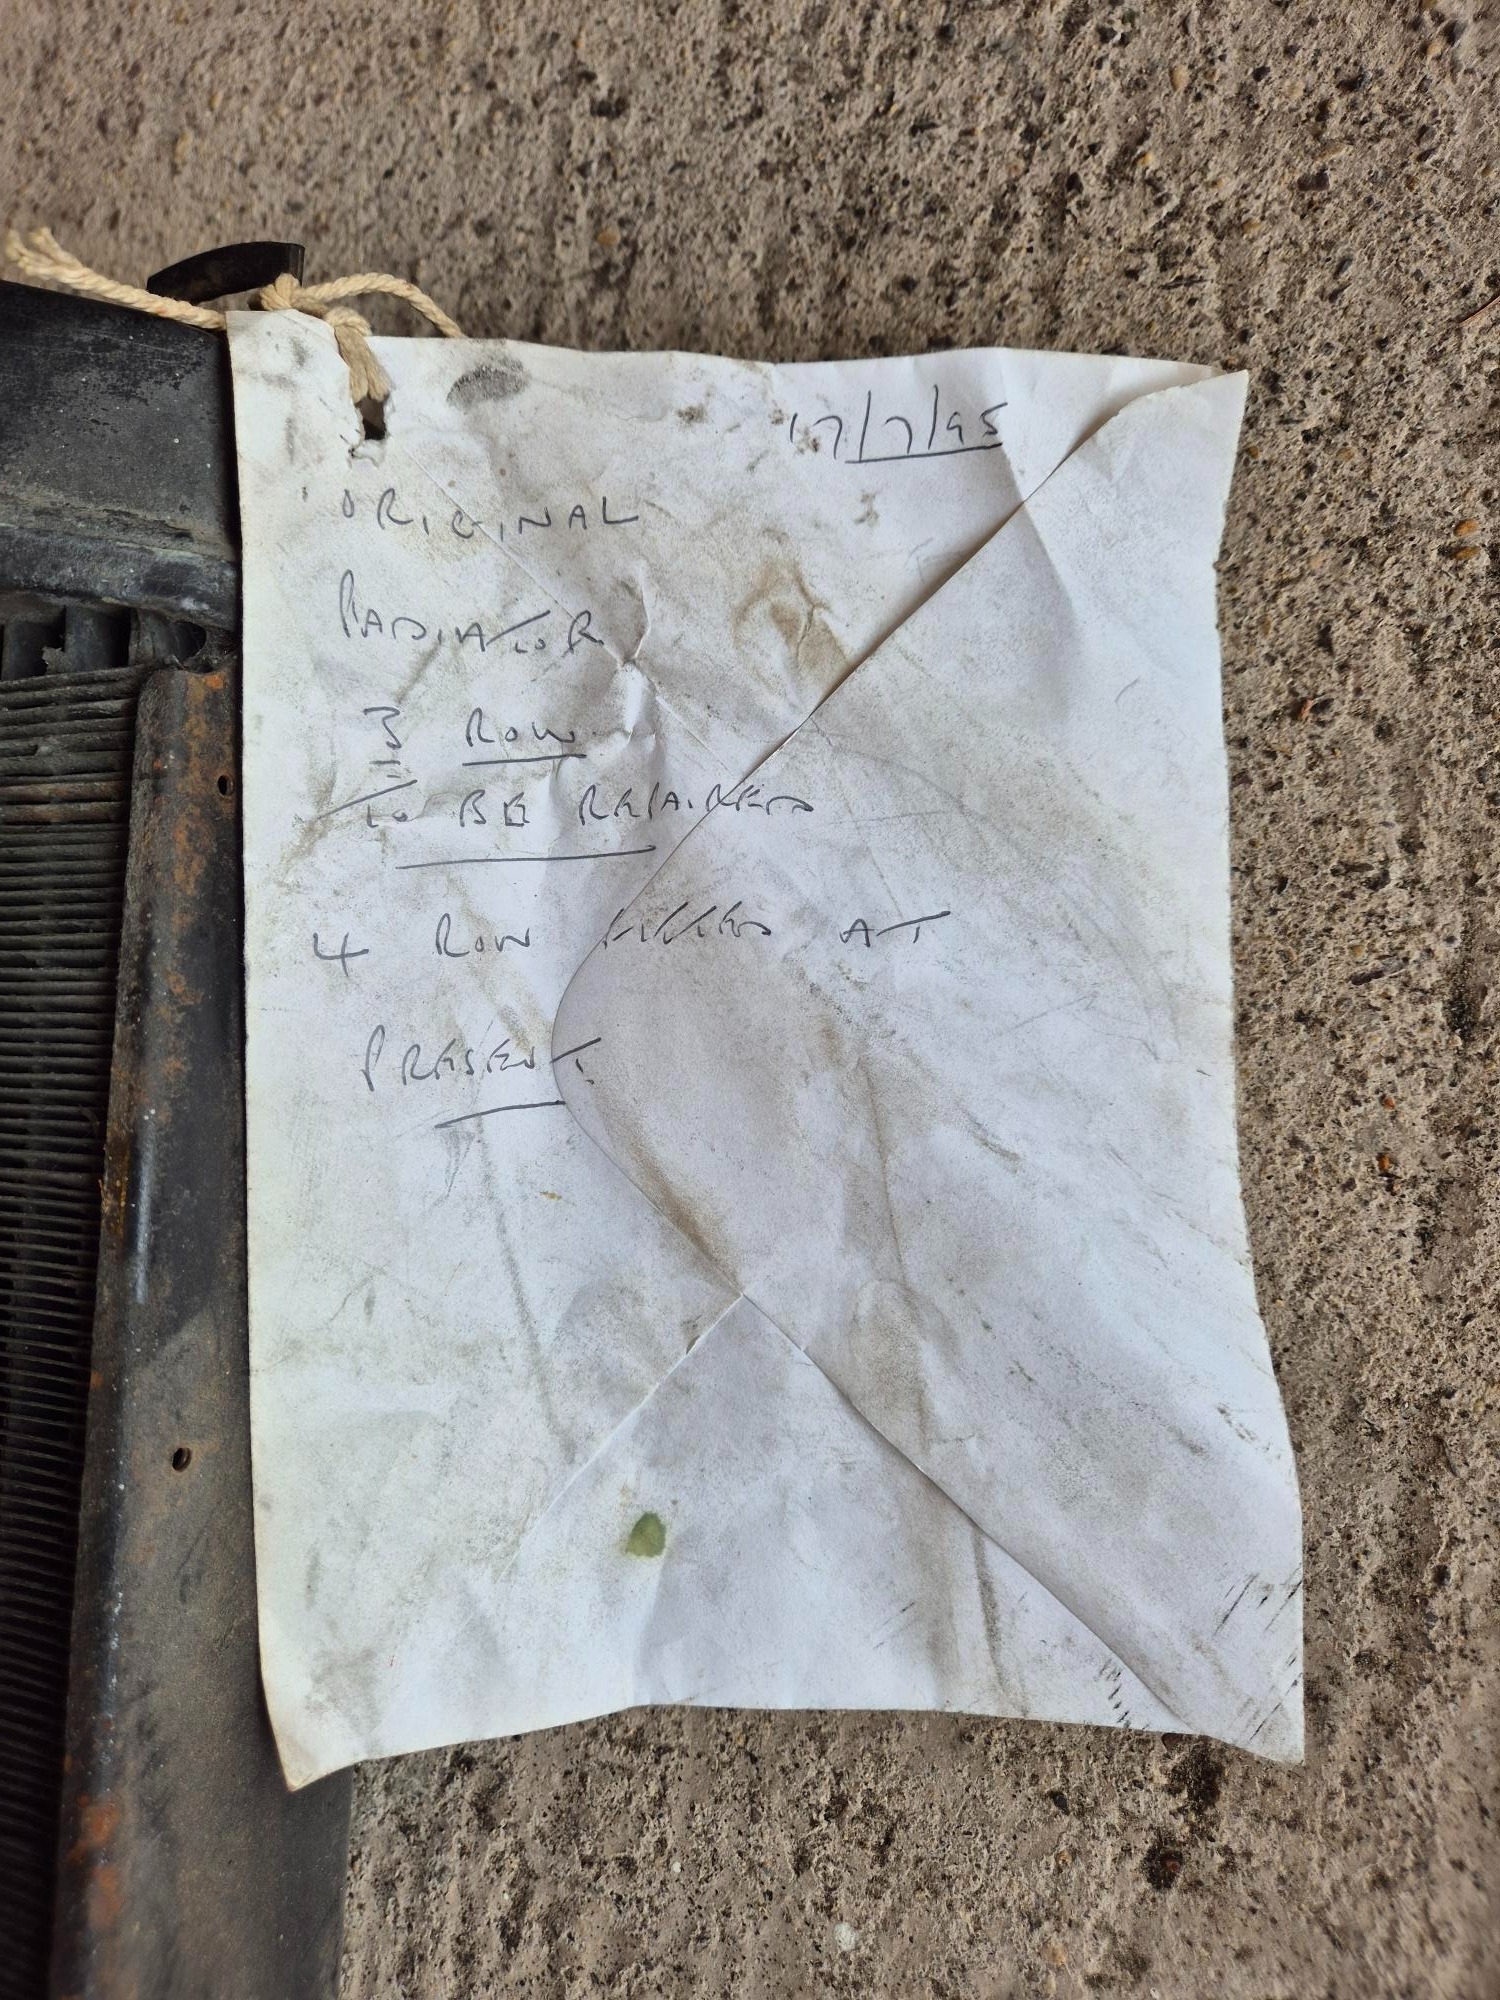 17/7/95
ORIGINAL
RADIATOR
3 ROW
TO BE REPAIRED
4 ROW FITTED AT
PRESENT.